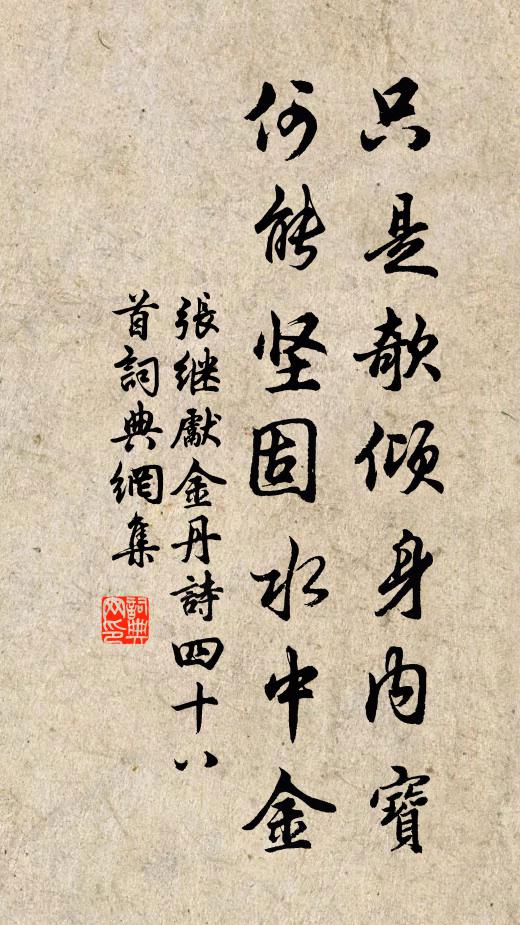 只是欹傾身内寶
何能坚固水中金
張继獻金丹詩四十八
首詞典網集
詞典
网印